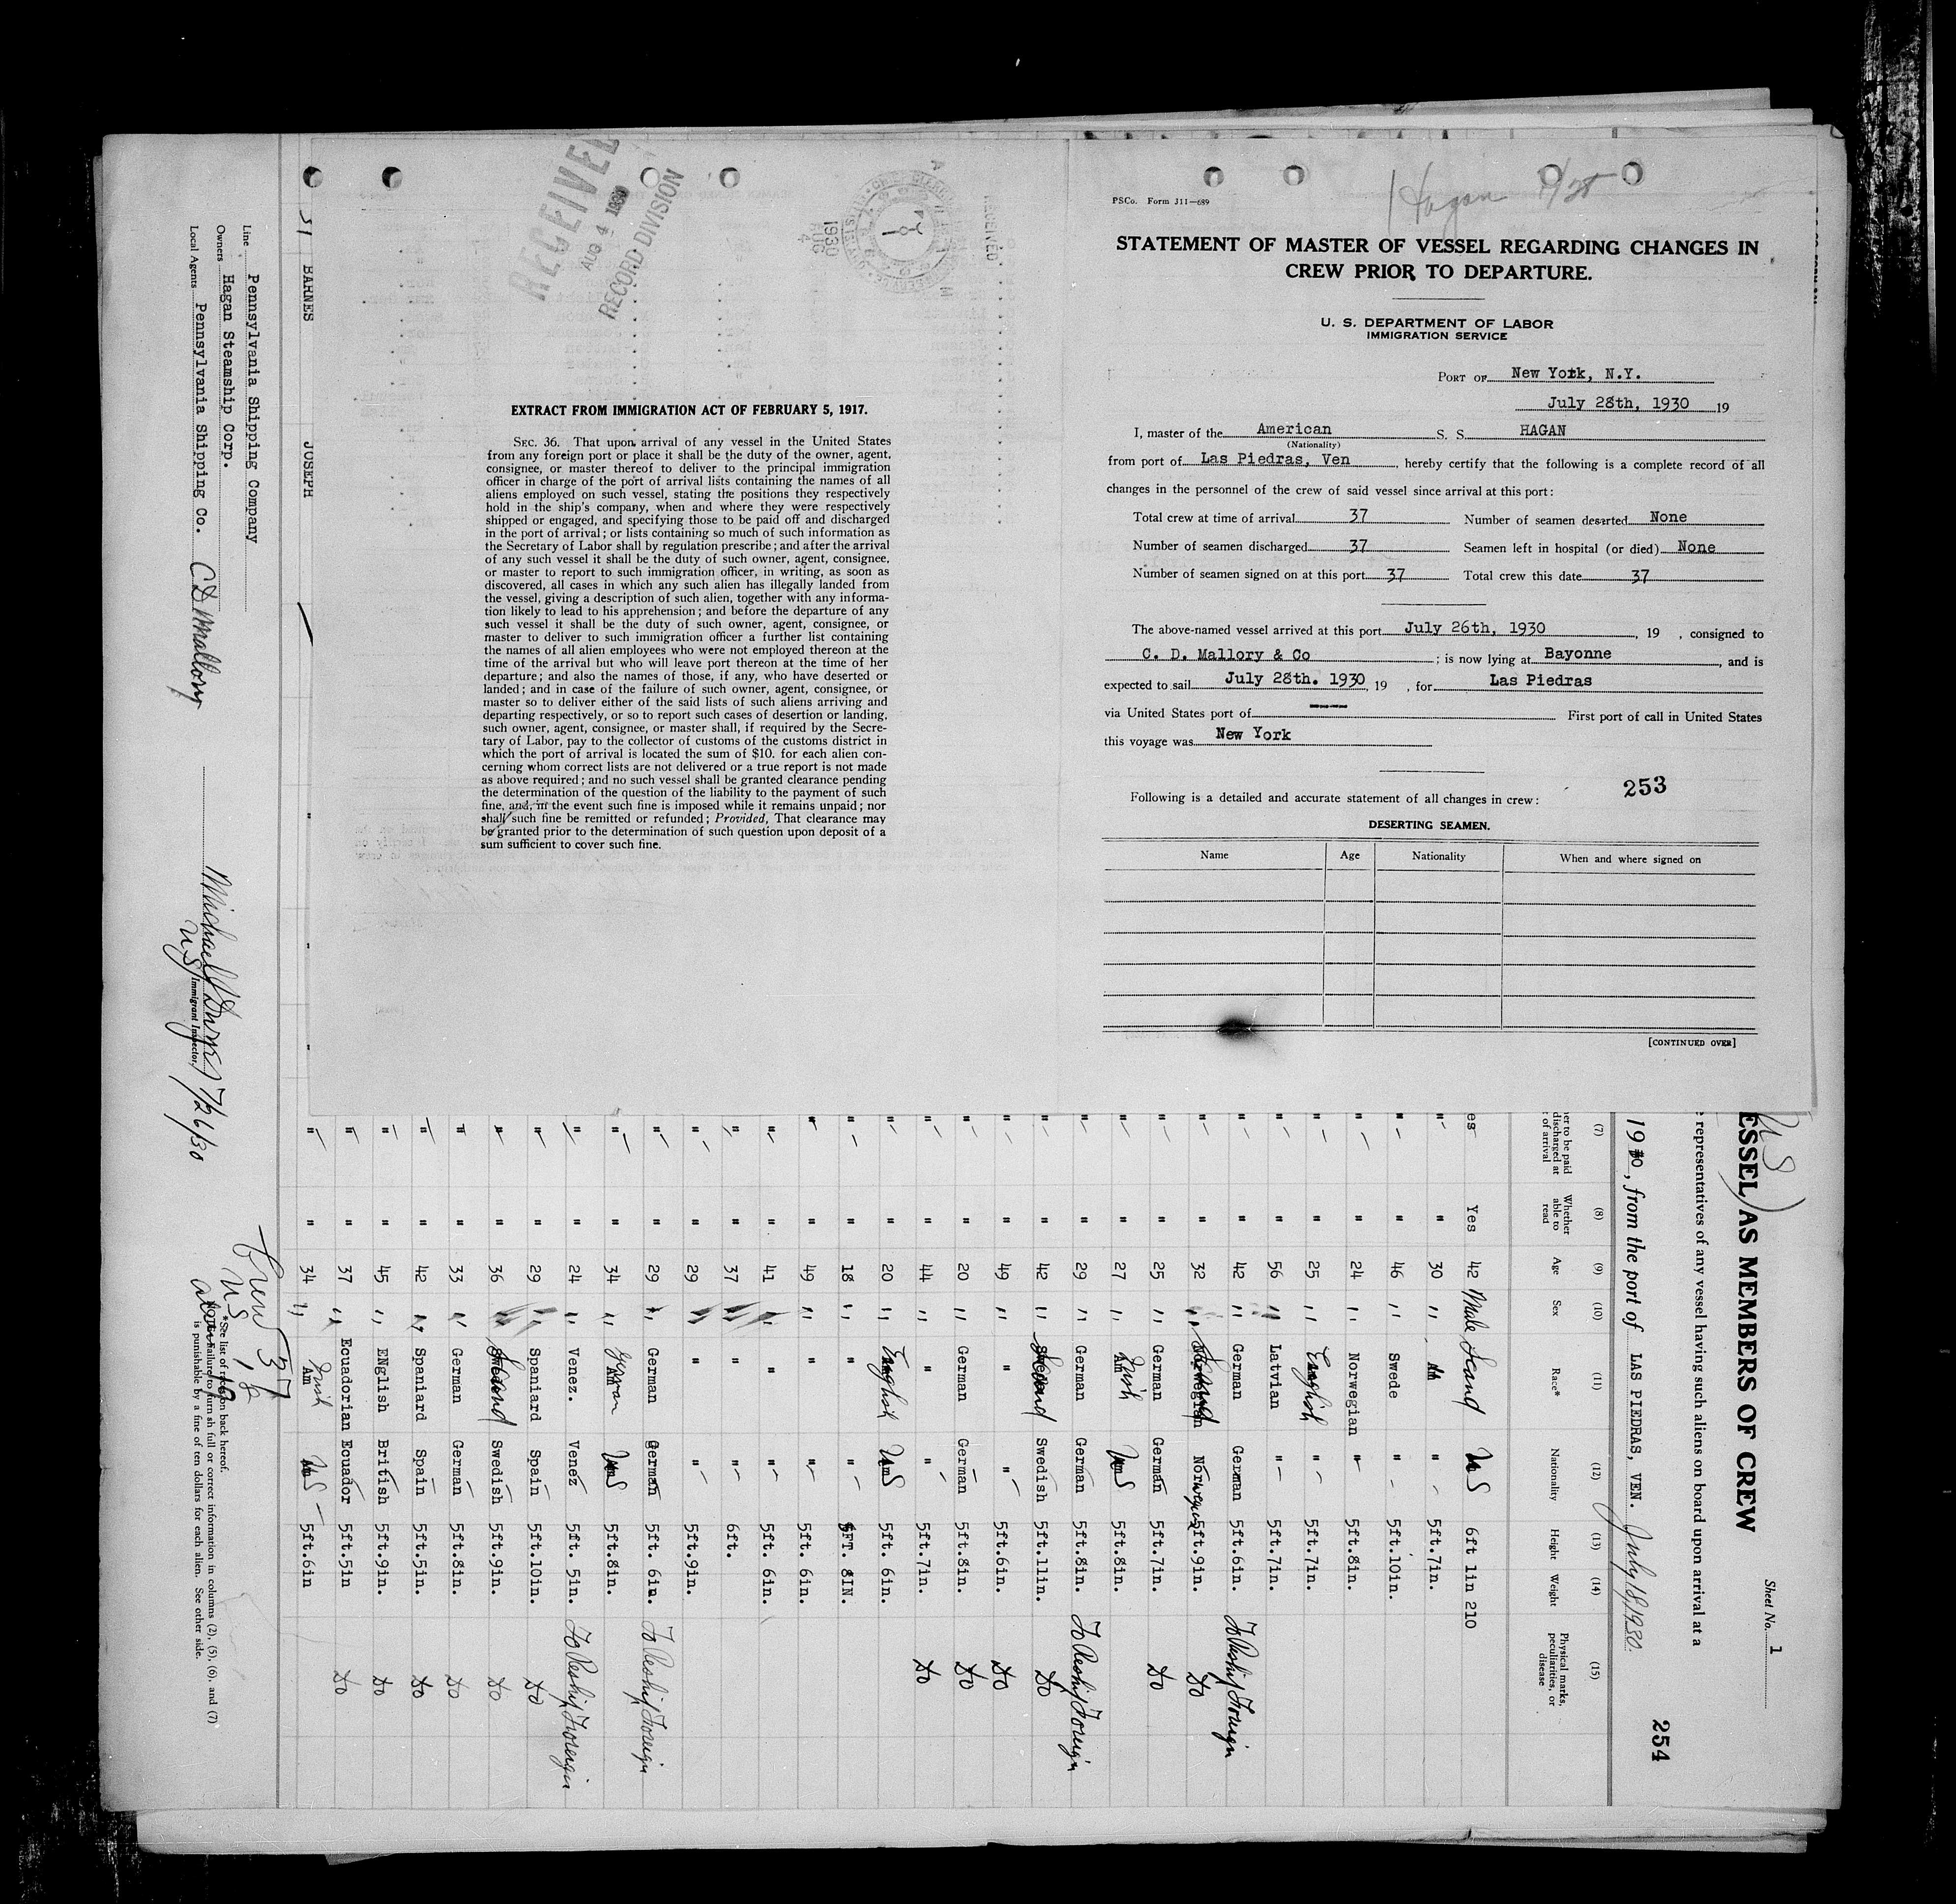 Hagan 7/28
PSCo. Form J11—689
STATEMENT OF MASTER OF VESSEL REGARDING CHANGES IN
CREW PRIOR TO DEPARTURE.
U. S. DEPARTMENT OF LABOR
IMMIGRATION SERVICE
PORT OF New York, N.Y.
July 28th, 1930 19
I, master of the American S. S. HAGAN
(Nationality)
from port of Las Piedras, Ven , hereby certify that the following is a complete record of all
changes in the personnel of the crew of said vessel since arrival at this port:
Total crew at time of arrival 37 Number of seamen deserted None
Number of seamen discharged 37 Seamen left in hospital (or died) None
Number of seamen signed on at this port 37 Total crew this date 37
The above-named vessel arrived at this port July 26th, 1930 , 19 , consigned to
C. D. Mallory & Co ; is now lying at Bayonne , and is
expected to sail July 28th. 1930 , 19 , for Las Piedras
via United States port of --- First port of call in United States
this voyage was New York
253
Following is a detailed and accurate statement of all changes in crew:
DESERTING SEAMEN.
Name Age Nationality When and where signed on
[CONTINUED OVER]
RECEIVED
AUG 4 1930
RECORD DIVISION
RECEIVED
1930
AUG
4
EXTRACT FROM IMMIGRATION ACT OF FEBRUARY 5, 1917.
SEC. 36. That upon arrival of any vessel in the United States
from any foreign port or place it shall be the duty of the owner, agent,
consignee, or master thereof to deliver to the principal immigration
officer in charge of the port of arrival lists containing the names of all
aliens employed on such vessel, stating the positions they respectively
hold in the ship's company, when and where they were respectively
shipped or engaged, and specifying those to be paid off and discharged
in the port of arrival; or lists containing so much of such information as
the Secretary of Labor shall by regulation prescribe; and after the arrival
of any such vessel it shall be the duty of such owner, agent, consignee,
or master to report to such immigration officer, in writing, as soon as
discovered, all cases in which any such alien has illegally landed from
the vessel, giving a description of such alien, together with any informa-
tion likely to lead to his apprehension; and before the departure of any
such vessel it shall be the duty of such owner, agent, consignee, or
master to deliver to such immigration officer a further list containing
the names of all alien employees who were not employed thereon at the
time of the arrival but who will leave port thereon at the time of her
departure; and also the names of those, if any, who have deserted or
landed; and in case of the failure of such owner, agent, consignee, or
master so to deliver either of the said lists of such aliens arriving and
departing respectively, or so to report such cases of desertion or landing,
such owner, agent, consignee, or master shall, if required by the Secre-
tary of Labor, pay to the collector of customs of the customs district in
which the port of arrival is located the sum of $10. for each alien con-
cerning whom correct lists are not delivered or a true report is not made
as above required; and no such vessel shall be granted clearance pending
the determination of the question of the liability to the payment of such
fine, and, in the event such fine is imposed while it remains unpaid; nor
shall such fine be remitted or refunded; Provided, That clearance may
be granted prior to the determination of such question upon deposit of a
sum sufficient to cover such fine.
Sheet No. 1
US
ESSEL AS MEMBERS OF CREW
representatives of any vessel having such aliens on board upon arrival at a
254
1930, from the port of LAS PIEDRAS, VEN. July 18, 1930
(7) (8) (9) (10) (11) (12) (13) (14) (15)
her to be paid discharged at of arrival
Whether able to read
Age
Sex
Race*
Nationality
Height
Weight
Physical marks, peculiarities, or disease
es Yes 42 Male Scand US 6ft 1in 210
" " 30 " Am " 5ft.7in.
" " 46 " Swede " 5ft.10in.
" " 24 " Norwegian " 5ft.8in.
" " 25 " English " 5ft.7in.
" " 56 " Latvian " 5ft.7in.
" " 42 " German German 5ft.6in. To Reship Foreign
" " 32 " Scand Norwegian 5ft.9in. Do
" " 25 " German German 5ft.7in. Do
" " 27 " Irish US 5ft.8in.
" " 29 " German German 5ft.8in. To Reship Foreign
" " 42 " Scand Swedish 5ft.11in. Do
" " 49 " " " 5ft.6in. Do
" " 20 " German German 5ft.8in. Do
" " 44 " " " 5ft.7in. Do
" " 20 " English US 5ft. 6in.
" " 18 " " " 5FT. 8IN.
" " 49 " " " 5ft. 6in.
" " 41 " " " 5ft. 6in.
" " 37 " " " 6ft.
" " 29 " " " 5ft.9in.
" " 29 " German German 5ft. 6in. To Reship Foreign
" " 34 " German US 5ft.8in.
" " 24 " Venez. Venez 5ft. 5in. To Reship Foreign
" " 29 " Spaniard Spain 5ft.10in. Do
" " 36 " Scand Swedish 5ft.9in. Do
" " 33 " German German 5ft.8in. Do
" " 42 " Spaniard Spain 5ft.5in. Do
" " 45 " ENglish British 5ft.9in. Do
" " 37 " Ecuadorian Ecuador 5ft.5in Do
31 BARNES JOSEPH " " " " " 34 " Irish US 5ft.6in
Line Pennsylvania Shipping Company
Owners Hagan Steamship Corp.
Local Agents Pennsylvania Shipping Co. C D Mallory
Immigrant Inspector. 7/26/30
Crew 37
US
*See list of races on back hereof.
NOTE.—Failure to furnish full or correct information in columns (2), (5), (6), and (7)
is punishable by a fine of ten dollars for each alien. See other side.